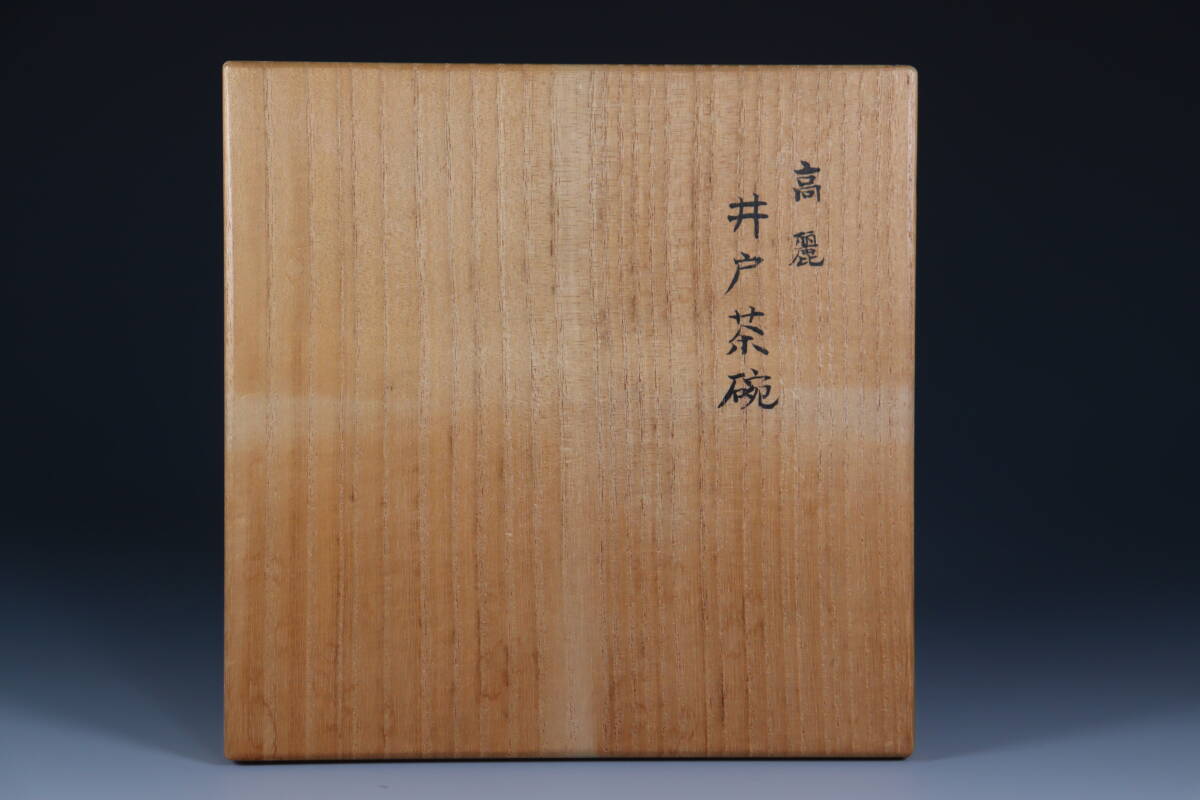 高麗
井戸茶碗